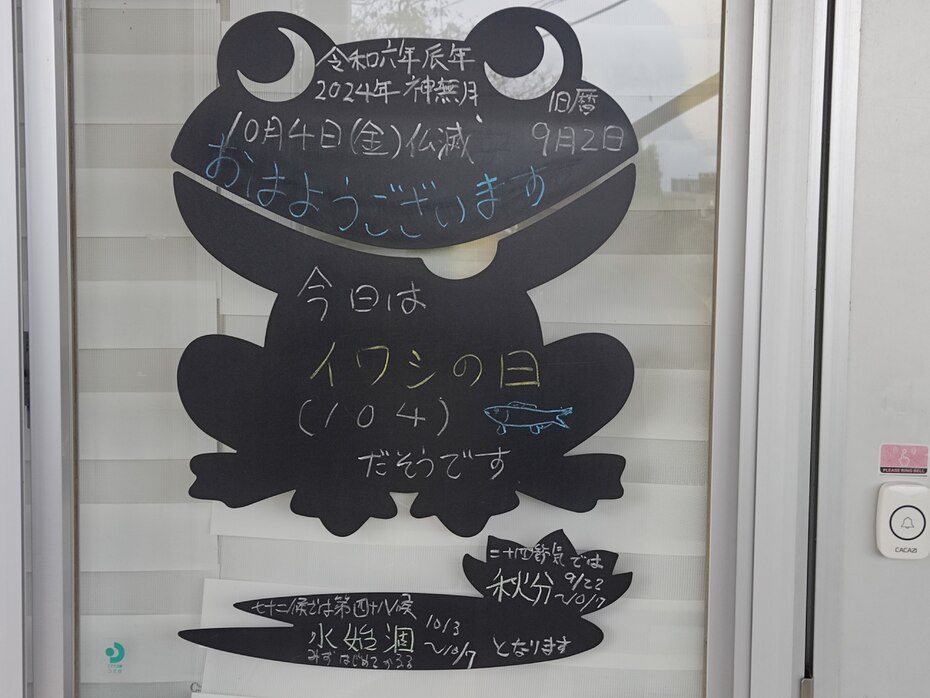 令和六年辰年
2024年 神無月
旧暦
10月4日(金)仏滅
9月2日
おはようございます
今日は
イワシの日
(104)
だそうです
二十四節気では
秋分 9/22
～10/7
七十二候では第四十八候
水始涸 10/3
～10/7
みずはじめてかるる
となります
PLEASE RING BELL
CACAZI